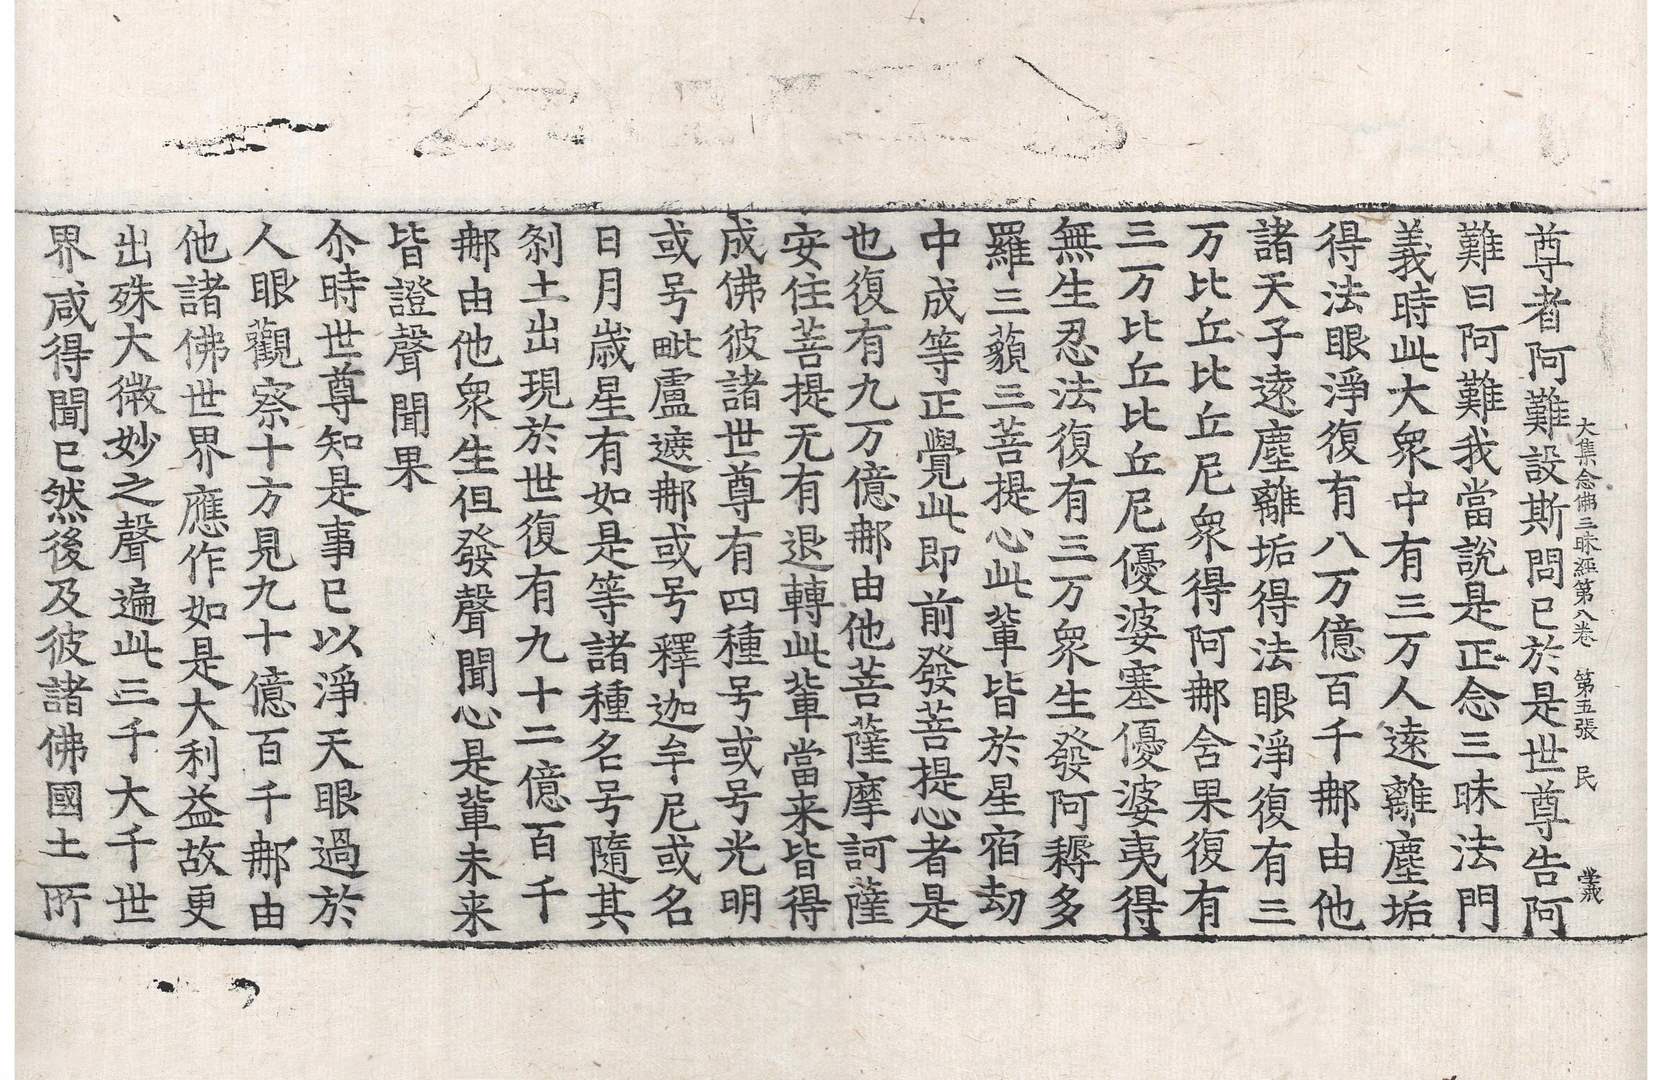 大集念佛三昧經第八卷　第五張　民
尊者阿難設斯問已於是世尊告阿
難曰阿難我當說是正念三昧法門
義時此大衆中有三万人遠離塵垢
得法眼淨復有八万億百千那由他
諸天子遠塵離垢得法眼淨復有三
万比丘比丘尼衆得阿那含果復有
三万比丘比丘尼優婆塞優婆夷得
無生忍法復有三万衆生發阿耨多
羅三藐三菩提心此輩皆於星宿劫
中成等正覺此即前發菩提心者是
也復有九万億那由他菩薩摩訶薩
安住菩提无有退轉此輩當来皆得
成佛彼諸世尊有四種号或号光明
或号毗盧遮那或号釋迦牟尼或名
日月歲星有如是等諸種名号隨其
剎土出現於世復有九十二億百千
那由他衆生但發聲聞心是輩未来
皆證聲聞果
尒時世尊知是事已以淨天眼過於
人眼觀察十方見九十億百千那由
他諸佛世界應作如是大利益故更
出殊大微妙之聲遍此三千大千世
界咸得聞已然後及彼諸佛國土所